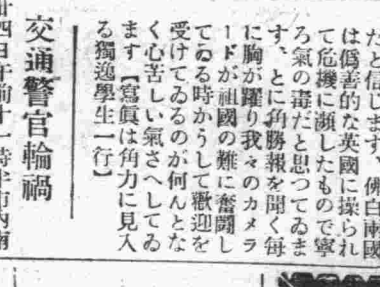 たと信じます、佛白兩國
は僞善的な英國に操られ
て危機に瀕したもので寧
ろ氣の毒だと思つてゐま
す、とに角勝報を聞く毎
に胸が躍り我々のカメラ
ードが祖國の難に奮鬪し
てゐる時かうして歡迎を
受けてゐるのが何んとな
く心苦しい氣さへしてゐ
ます【寫眞は角力に見入
る獨逸學生一行】
交通警官輪禍
廿四日午前十一時半市內南